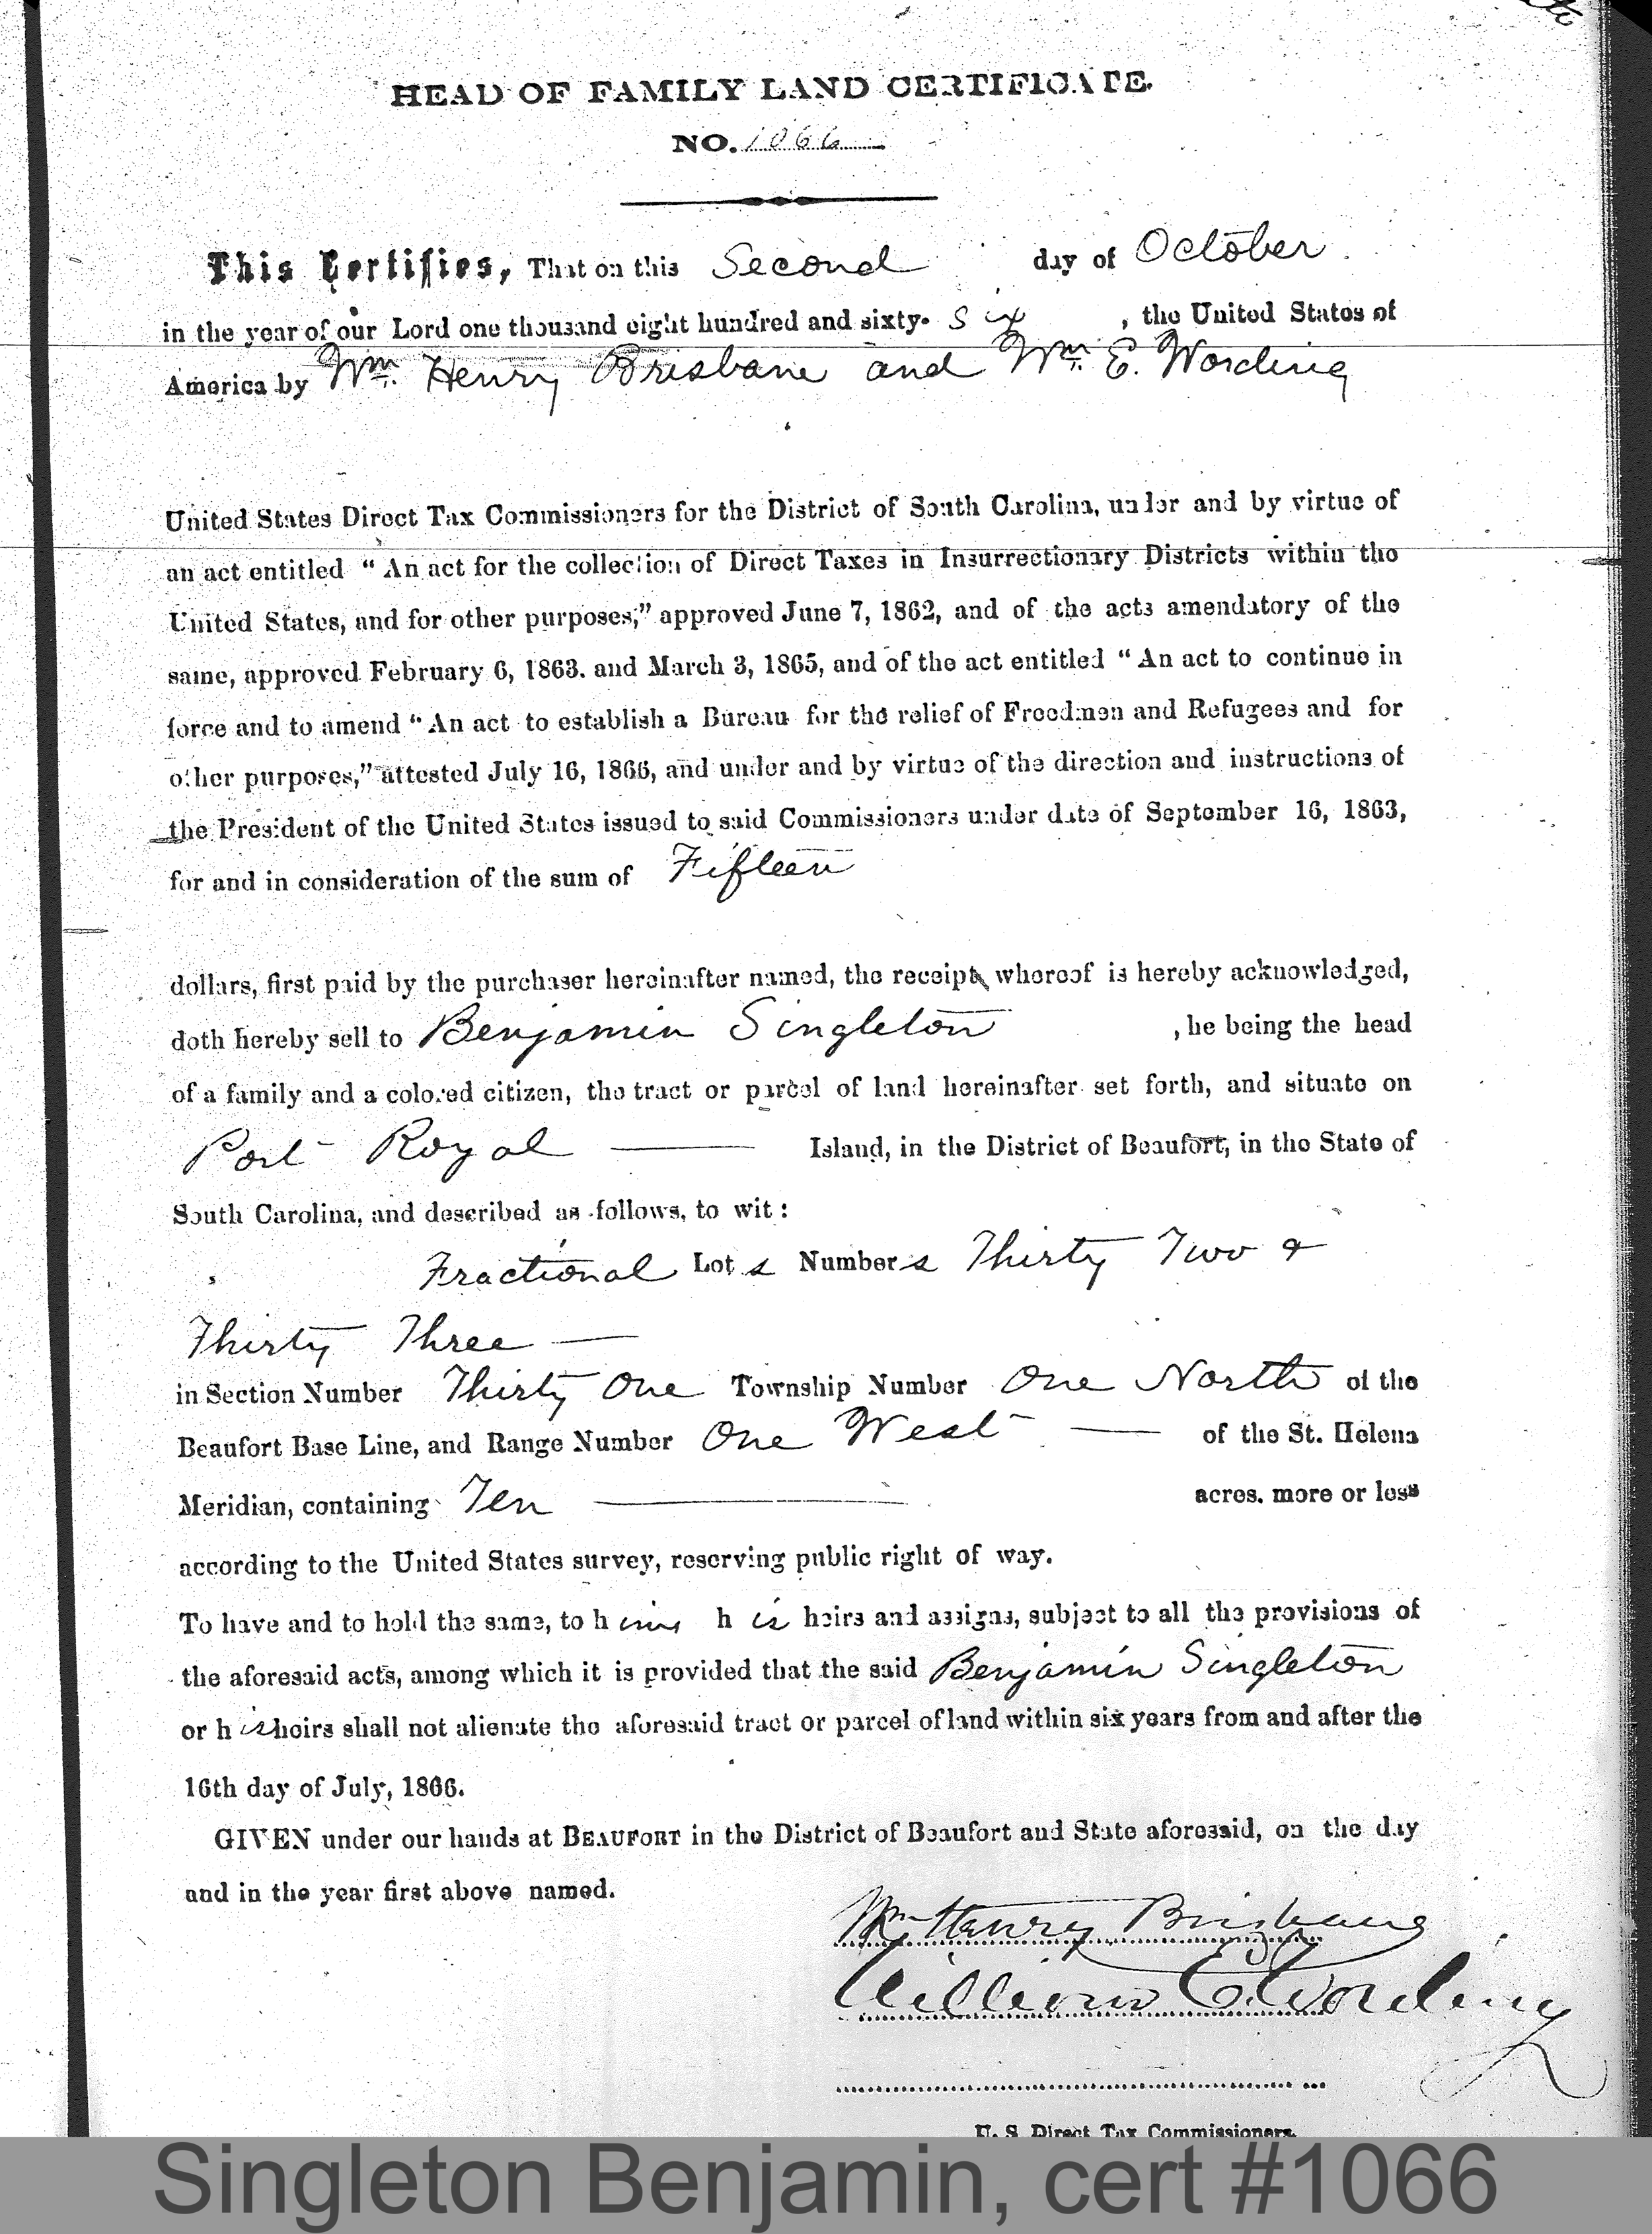 HEAD OF FAMILY LAND CERTIFICATE.
NO. 1066
This Certifies, That on this Second day of October
in the year of our Lord one thousand eight hundred and sixty- six, the United States of
America by Wm. Henry Brisbane and Wm. E. Wording
United States Direct Tax Commissioners for the District of South Carolina, under and by virtue of
an act entitled "An act for the collection of Direct Taxes in Insurrectionary Districts within the
United States, and for other purposes;" approved June 7, 1862, and of the acts amendatory of the
same, approved February 6, 1863. and March 3, 1865, and of the act entitled "An act to continue in
force and to amend "An act to establish a Bureau for the relief of Freedmen and Refugees and for
other purposes," attested July 16, 1866, and under and by virtue of the direction and instructions of
the President of the United States issued to said Commissioners under date of September 16, 1863,
for and in consideration of the sum of Fifteen
dollars, first paid by the purchaser hereinafter named, the receipt whereof is hereby acknowledged,
doth hereby sell to Benjamin Singleton, he being the head
of a family and a colored citizen, the tract or parcel of land hereinafter set forth, and situate on
Port Royal — Island, in the District of Beaufort, in the State of
South Carolina, and described as follows, to wit:
Fractional Lots Numbers Thirty Two &
Thirty Three —
in Section Number Thirty One Township Number One North of the
Beaufort Base Line, and Range Number One West — of the St. Helena
Meridian, containing Ten — acres. more or less
according to the United States survey, reserving public right of way.
To have and to hold the same, to him his heirs and assigns, subject to all the provisions of
the aforesaid acts, among which it is provided that the said Benjamin Singleton
or his heirs shall not alienate the aforesaid tract or parcel of land within six years from and after the
16th day of July, 1866.
GIVEN under our hands at BEAUFORT in the District of Beaufort and State aforesaid, on the day
and in the year first above named.
Wm Henry Brisbane
William E. Wording
U. S. Direct Tax Commissioners.
Singleton Benjamin, cert #1066